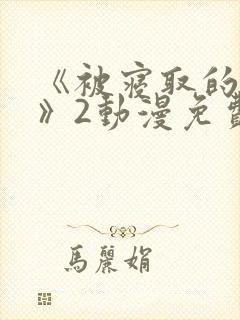 《被寝取的
》2動漫免費
馬麗娟